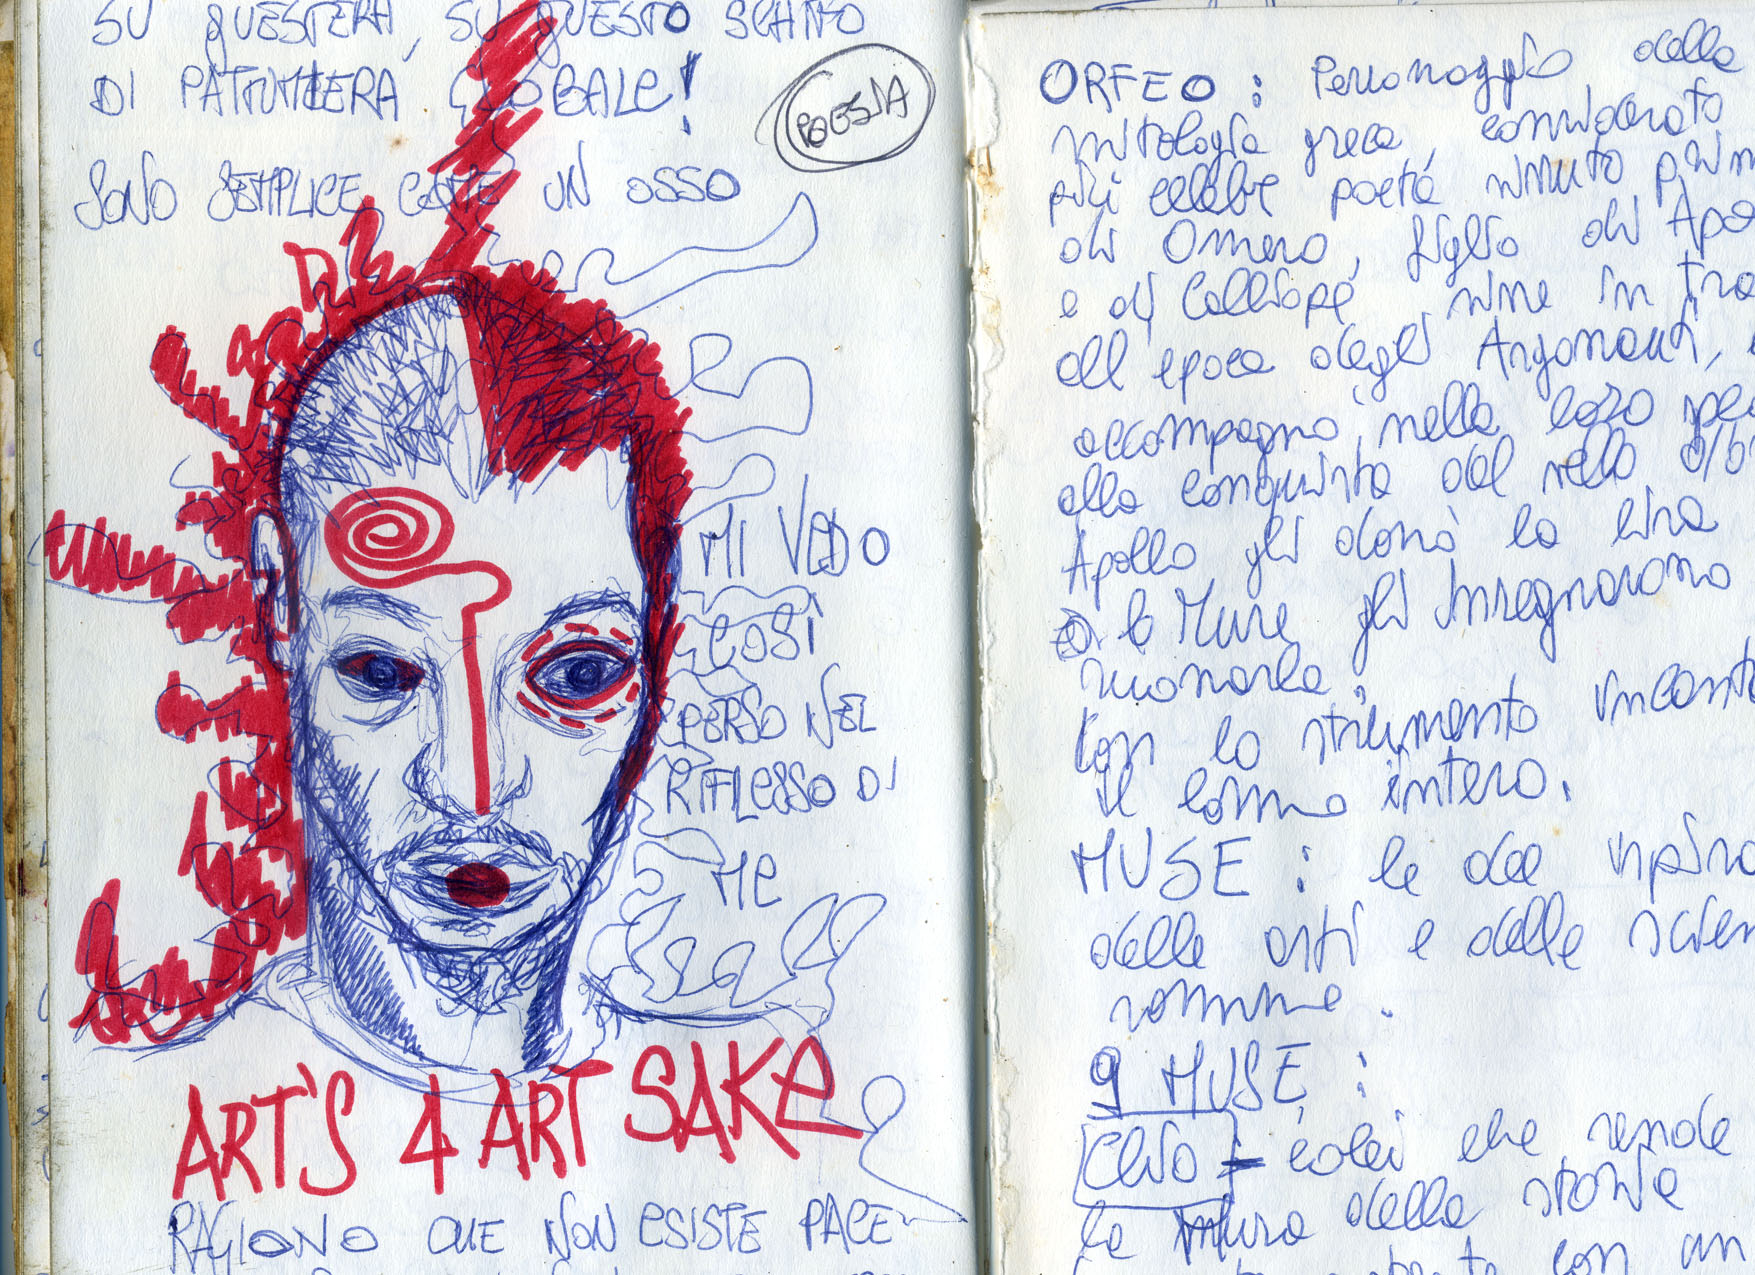 SU QUEST'ERA, SU QUESTO SCHIFO
DI PATTUMIERA GLOBALE!
POESIA
SONO SEMPLICE COME UN OSSO
MI VEDO
COSÌ
PERSO NEL
RIFLESSO DI
ME
ART'S 4 ART SAKE
RAGIONO CHE NON ESISTE PACE
ORFEO : Personaggio della
mitologia greca, considerato
più celebre poeta vissuto prim
di Omero, figlio di Apo
e di Calliope vive in Tra
all epoca degli Argonauti,
accompagnò nella loro spe
alla conquista del vello d'
Apollo gli donò la lira
le Muse gli insegnarono
suonarla.
Con lo strumento incanta
il cosmo intero.
MUSE : le dee ispira
delle arti e delle scien
somme.
9 MUSE :
Clio = colei che rende
la musa della storia
con un